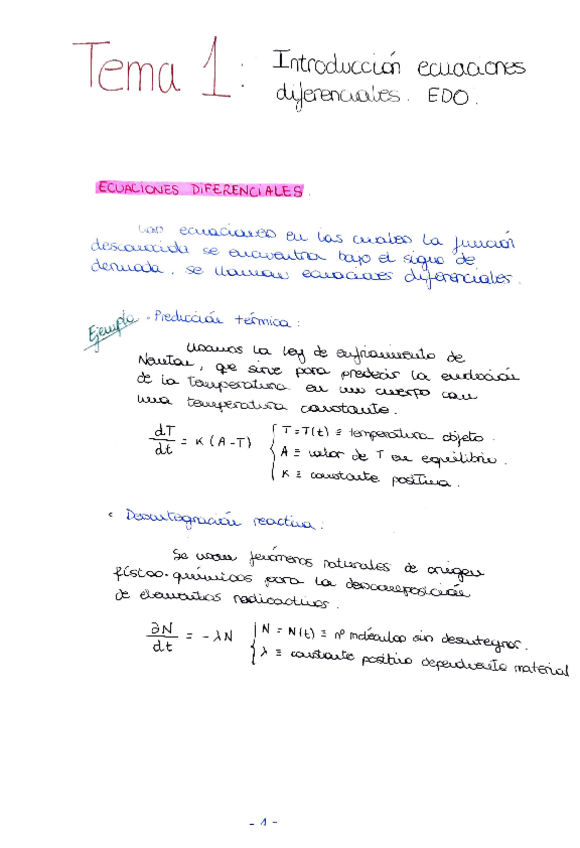 Tema 1: Introducción ecuaciones
diferenciales. EDO.
ECUACIONES DIFERENCIALES.
Las ecuaciones en las cuales la función
desconocida se encuentra bajo el signo de
derivada, se llaman ecuaciones diferenciales.
Ejemplo · Predicción térmica:
Usamos la ley de enfriamiento de
Newton, que sirve para predecir la evolución
de la temperatura en un cuerpo con
una temperatura constante.
dT/dt = K (A - T) { T = T(t) ≡ temperatura objeto.
A ≡ valor de T en equilibrio.
K ≡ constante positiva.
· Desintegración reactiva:
Se usan fenómenos naturales de origen
físico-químicos para la descomposición
de elementos radioactivos.
∂N/dt = - λN { N = N(t) ≡ nº moléculas sin desintegrar.
λ ≡ constante positiva dependiente material
- 1 -